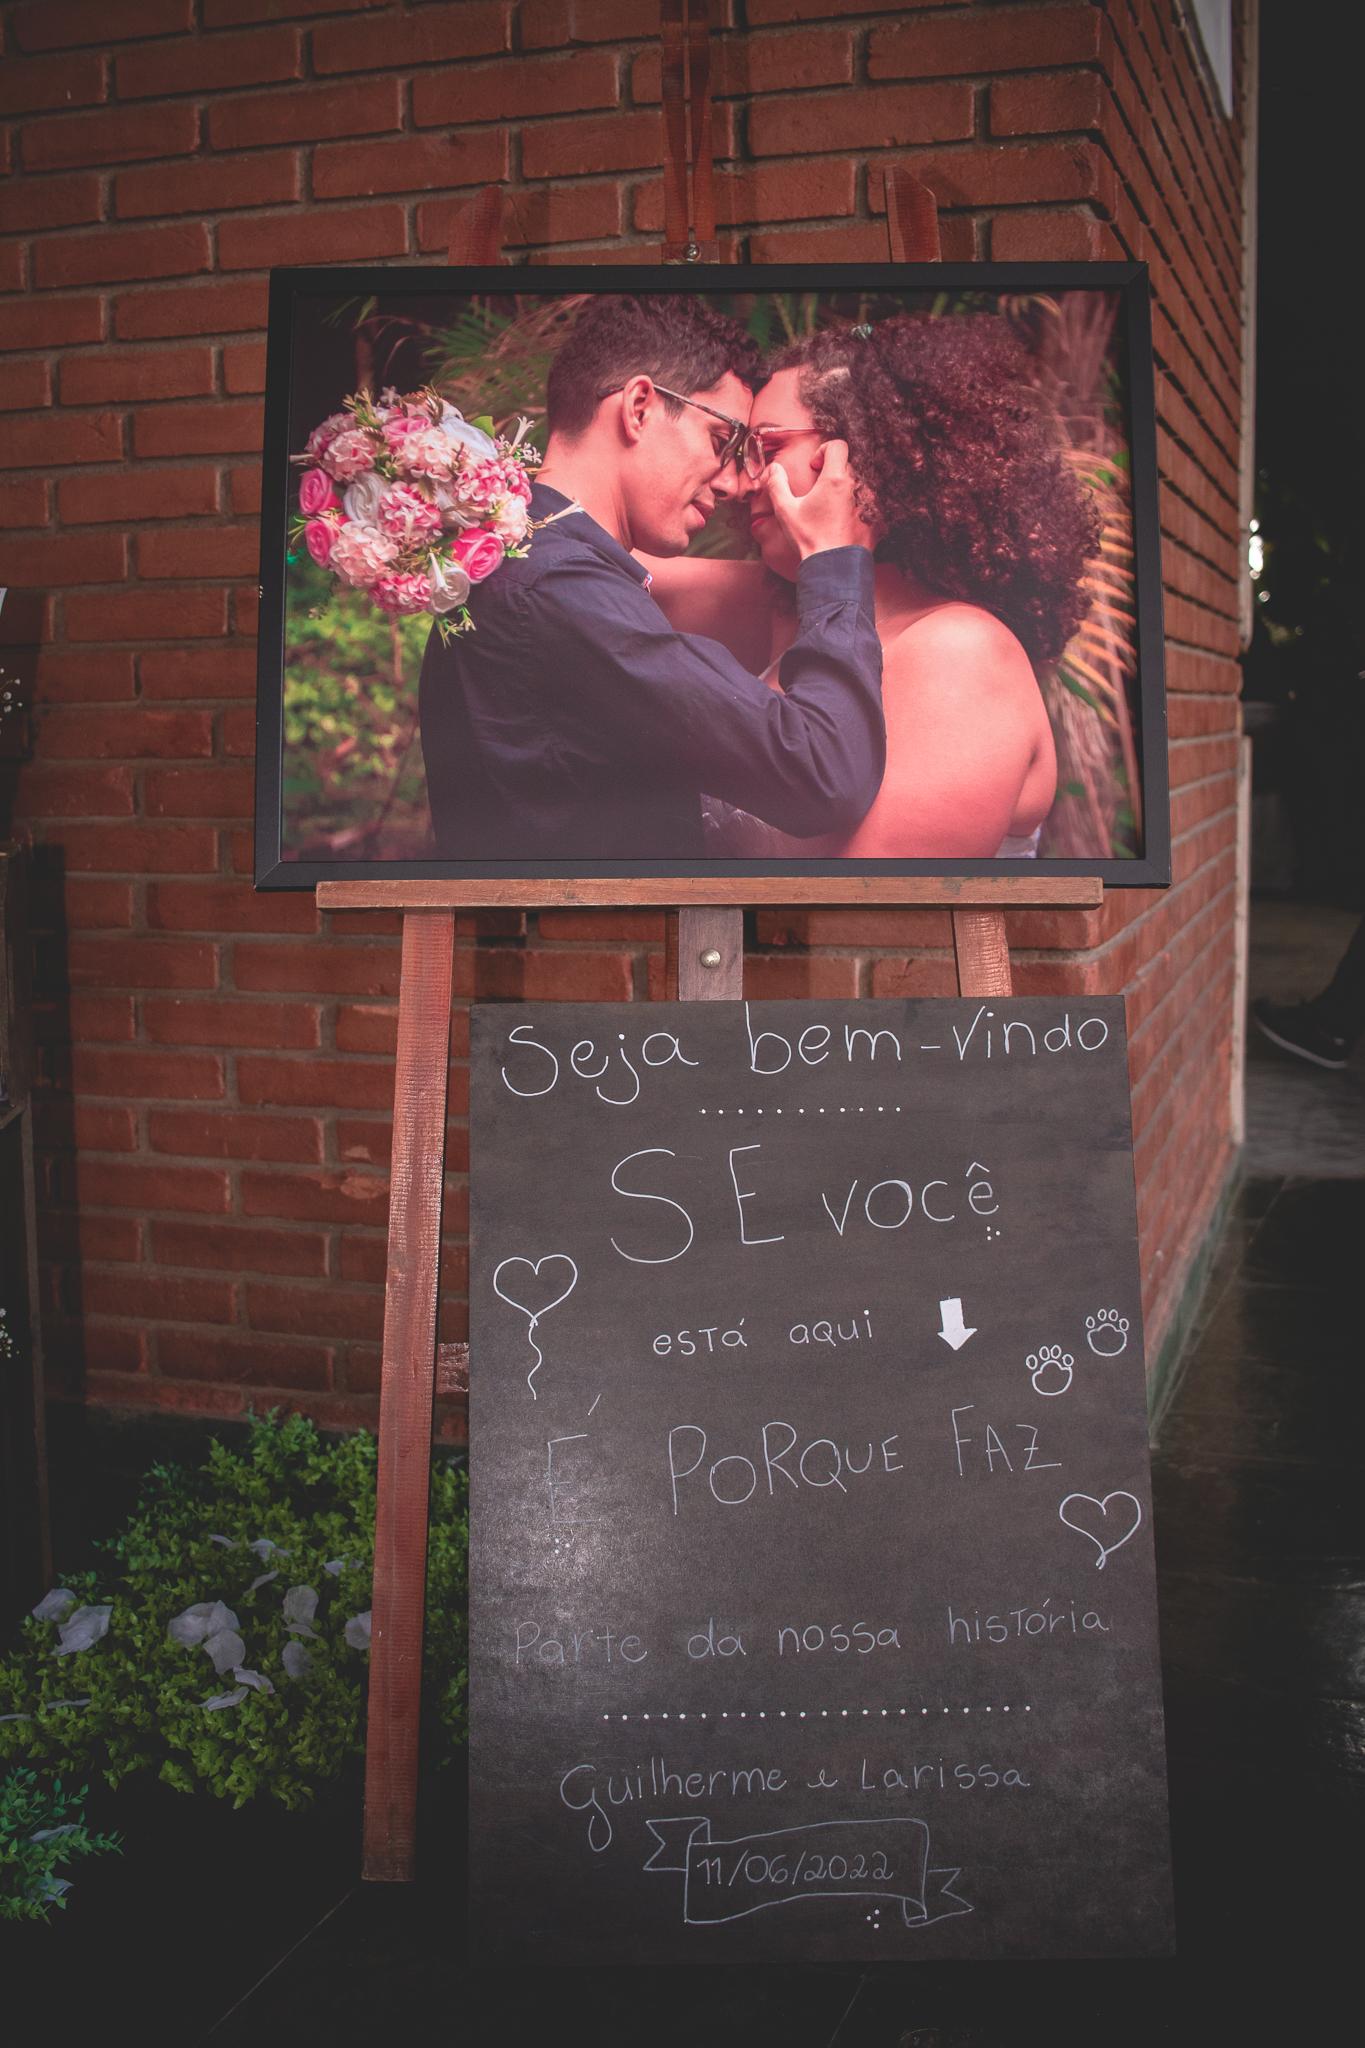 Seja bem-vindo
SE você
está aqui
É PORQUE FAZ
Parte da nossa história
Guilherme e Larissa
11/06/2022